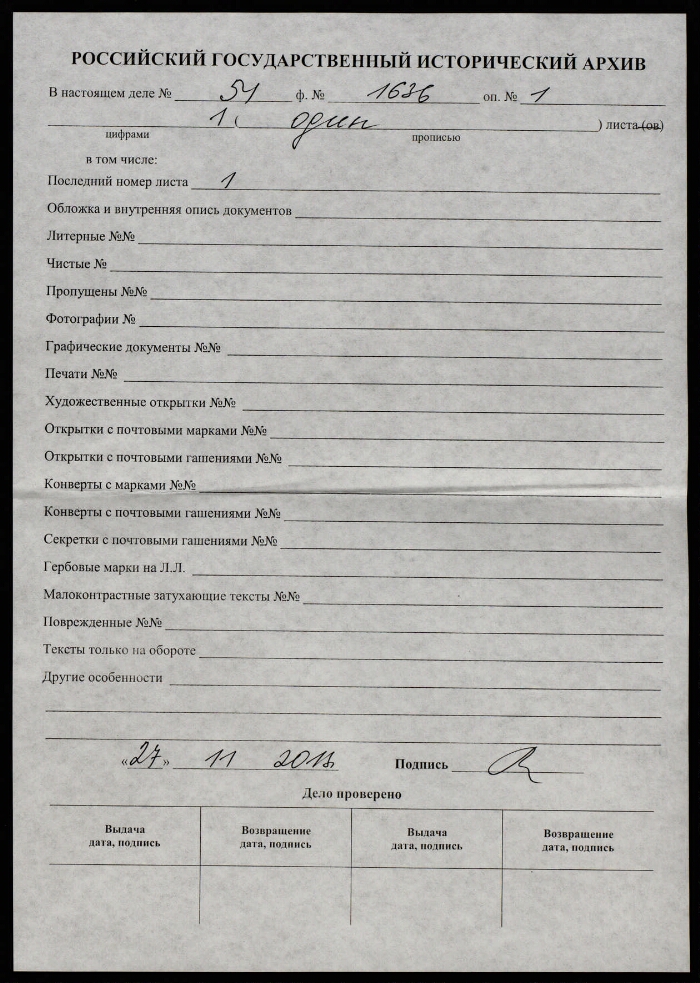 РОССИЙСКИЙ ГОСУДАРСТВЕННЫЙ ИСТОРИЧЕСКИЙ АРХИВ
В настоящем деле № 54 ф. № 1636 оп. № 1
1 ( один ) листа (ов)
цифрами прописью
в том числе:
Последний номер листа 1
Обложка и внутренняя опись документов
Литерные №№
Чистые №
Пропущены №№
Фотографии №
Графические документы №№
Печати №№
Художественные открытки №№
Открытки с почтовыми марками №№
Открытки с почтовыми гашениями №№
Конверты с марками №№
Конверты с почтовыми гашениями №№
Секретки с почтовыми гашениями №№
Гербовые марки на Л.Л.
Малоконтрастные затухающие тексты №№
Поврежденные №№
Тексты только на обороте
Другие особенности
«27» 11 Подпись
Дело проверено
Выдача дата, подпись
Возвращение дата, подпись
Выдача дата, подпись
Возвращение дата, подпись